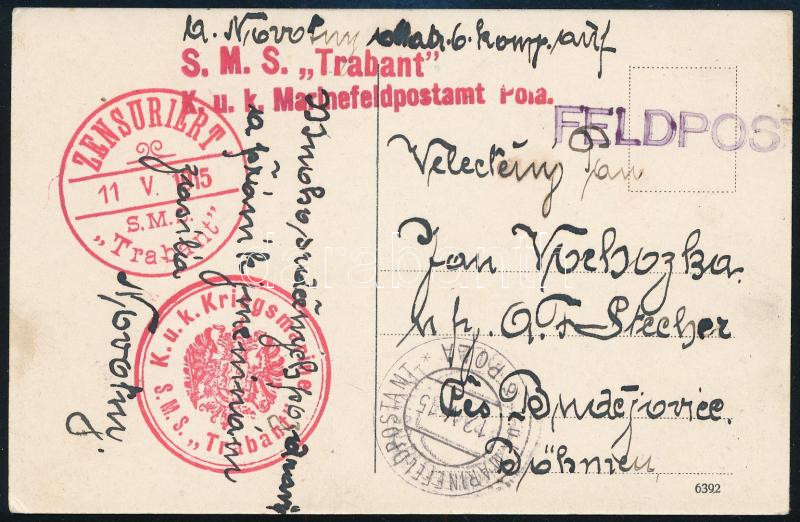 a. Novotny 6. komp. auf
S. M. S. „Trabant"
K. u. k. Marinefeldpostamt Pola.
FELDPOST
ZENSURIERT
11 V. 1915
S.M.S.
„Trabant"
K. u. k. Kriegsmarine
S.M.S. „Trabant"
Mnoho srdečných pozdravů
a přání k jmeninám
zasílá
Novotný J.
Velectěný Pan
Jan Vochozka
A. F. Stecher
Čes. Budějovice.
Böhmen
K.U.K. MARINEFELDPOSTAMT * POLA *
12.V.15
6392
darabanth